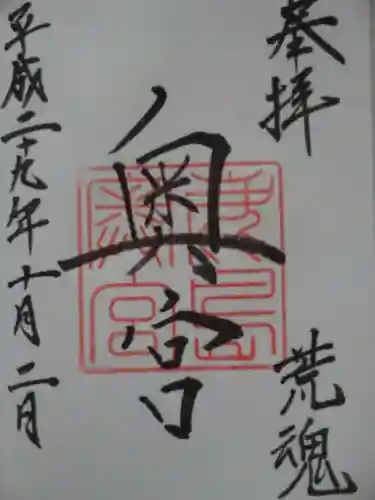 奉拝
荒魂
奥宮
鹿島神宮
平成二十九年十月二日